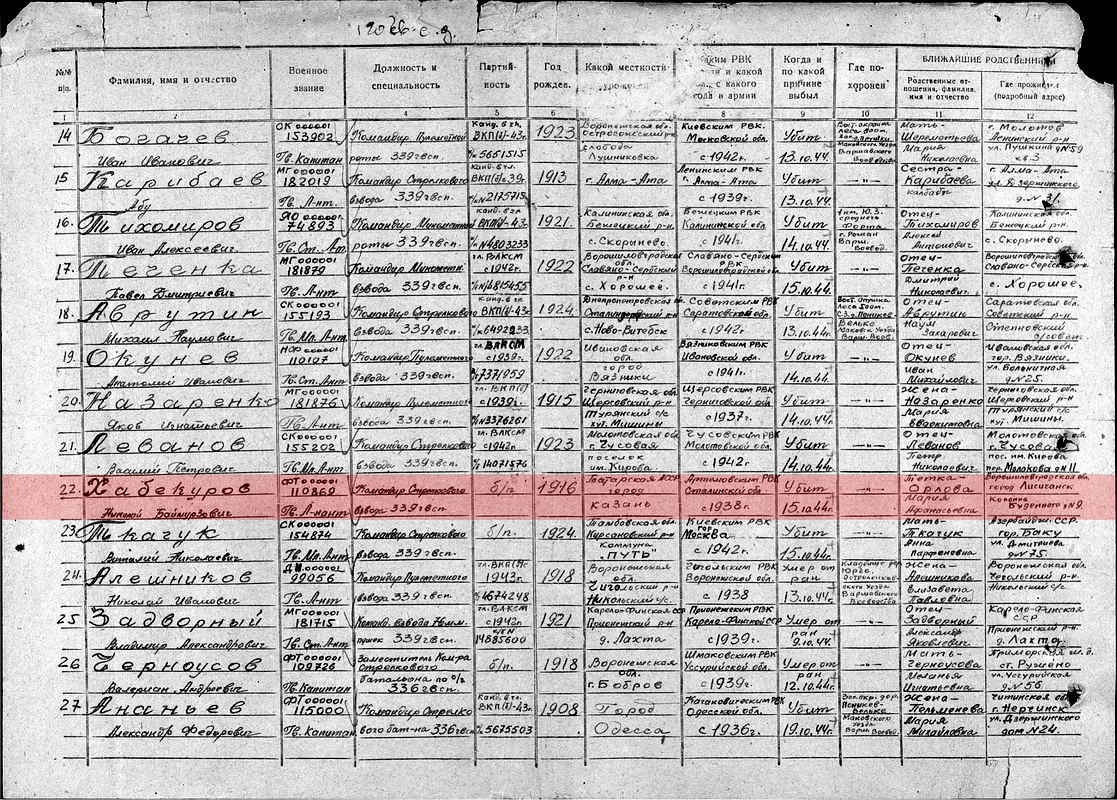 №№ п/п.
Фамилия, имя и отчество
Военное звание
Должность и специальность
Партий-ность
Год рожден.
Какой местности
Каким РВК
и какой
с какого года в армии
Когда и по какой причине выбыл
Где по-хоронен
БЛИЖАЙШИЕ РОДСТВЕННИКИ
Родственные от-ношения, фамилия, имя и отчество
Где проживает (подробный адрес)
1 2 5 6 7 8 9 10 11 12
14 Богачев Иван Иванович
153902 Гв. Капитан
Командир Пулеметной роты 339 гвсп.
Канд. в чл. ВКП(б)-43г. № 5651515
1923
Воронежская обл. слобода Лушниковка
Киевским РВК Московской обл. с 1942г.
Убит 13.10.44.
Мать- Шереметьева Мария Николаевна
г. Молотов Ленинский р-н ул. Пушкина д №59 кв.3
15 Карибаев Абу
МГ 00001 182019 Гв. Л-нт.
Командир Стрелкового взвода 339 гвсп.
1913
г. Алма-Ата
Ленинским РВК г. Алма-Ата с 1939г.
Убит 13.10.44.
Сестра- Карибаева
г. Алма-Ата ул. Дзержинского д № 31.
16. Тихомиров Иван Алексеевич
74893 Гв. Ст. Л-нт
Командир Минометной роты 339 гвсп.
ВКП(б)-43г. № 4803233
1921.
Калининская обл. Бежецкий р-н с. Скоринево.
Бежецким РВК Калининской обл. с 1941г.
Убит 14.10.44.
Отец- Тихомиров Алексей Антонович
Калининская обл. Бежецкий р-н с. Скоринево.
17. Печенка Павел Дмитриевич
МГ 00001 181879 Гв. Л-нт
Командир Минометн. взвода 339 гвсп.
чл. ВЛКСМ с 1942г. № 6815455
1922
Ворошиловградская обл. Славяно-Сербский р-н с. Хорошее.
Славяно-Сербским РВК Ворошиловградской обл. с 1941г.
Убит 15.10.44.
—"—
Отец- Печенка Дмитрий Николаевич.
Ворошиловградская Славяно-Сербск. с. Хорошее.
18. Аврутин Михаил Наумович
СК 00001 155193 Гв. Мл. Л-нт
Командир Стрелкового взвода 339 гвсп.
ВКП(б)-44г. № 6492233
1924.
Днепропетровская обл. с. Ново-Витебск
Советским РВК Саратовской обл. с 1942г.
Убит 13.10.44.
Отец- Аврутин Наум Захарович
Саратовская обл. Советский р-н
19. Окунев Анатолий Иванович
110107 Гв. Ст. Л-нт
Командир Пулеметного взвода 339 гвсп.
чл. ВЛКСМ с 1939г. № 7371959
1922
Ивановская обл. город Вязники
Вязниковским РВК Ивановской обл. с 1941г.
Убит 14.10.44.
—"—
Отец- Окунев Иван Михайлович
Ивановская обл. гор. Вязники. ул. Больничная д №25.
20. Назаренко Яков Игнатьевич
МГ 00001 181876 Гв. Л-нт
Командир Пулеметного взвода 339 гвсп.
чл. ВКП(б) с 1939г. № 3376261
1915
Черниговская обл. Щорсовский р-н Турянский с/с хут. Мишины
Щорсовским РВК Черниговской обл. с 1937г.
Убит 14.10.44.
—"—
Жена- Назаренко Мария Евдокимовна
Черниговская обл. Щорсовский р-н Турянский с/с хут. Мишины.
21. Леванов Василий Петрович
СК 00001 155202 Гв. Мл. Л-нт
Командир Стрелкового взвода 339 гвсп.
чл. ВЛКСМ с 1942г. № 14071576
1923
Молотовская обл. г. Чусовая поселок им. Кирова.
Чусовским РВК Молотовской обл. с 1942г.
Убит 14.10.44.
—"—
Отец- Леванов Петр Николаевич
Молотовская обл. г. Чусовая пос. им. Кирова пер. Молокова д № 11.
22. Хабекуров Николай Баймурзович
ФТ 00001 110869 Гв. Л-нант
Командир Стрелкового взвода 339 гвсп.
б/п
1916
Татарская АССР город Казань
Артемовским РВК Сталинской обл. с 1938г.
Убит 15.10.44г.
—"—
Тетка- Орлова Мария Афанасьевна
Ворошиловградская обл. город Лисичанск Колонна Буденного д №9.
23. Ткачук Виталий Николаевич
СК 00001 154874 Гв. Мл. Л-нт
Командир Стрелкового взвода 339 гвсп.
б/п.
1924.
Тамбовская обл. Кирсановский р-н Коммуна "ПУТЬ"
Киевским РВК гор. Москва с 1942г.
Убит 15.10.44г.
—"—
Мать- Ткачук Анна Парфеновна
Азербайдж. ССР. гор. Баку ул. Дмитриева д №75.
24. Алешников Николай Иванович
99056 Гв. Л-нт
Командир Пулеметного взвода 339 гвсп.
1943г. № 4674248
1918
Воронежская обл. Чигольский р-н Никольский с/с.
Чигольским РВК Воронежской обл. с 1938
Умер от ран 13.10.44г.
Жена- Алешникова Елизавета Павловна
Воронежская обл. Чигольский р-н
25 Задворный Владимир Александрович
МГ 00001 181715 Гв. Ст. Л-нт
Команд. взвода 76 мм. пушек 339 гвсп.
чл. ВЛКСМ с 1942г. 14885600
1921
Карело-Финская сср Прионежский р-н д. Лахта
Прионежским РВК Карело-Финской сср с 1939г.
Умер от ран 9.10.44г.
—"—
Отец- Задворный Александр Яковлевич
Карело-Финская ССР Прионежский р-н д. Лахта
26 Черноусов Валериан Андреевич
ФТ 00001 109726 Гв. Капитан
Заместитель Ком-ра Стрелкового батальона по с/ч 336 гвсп.
б/п.
1918
Воронежская обл. г. Бобров
Шмаковским РВК Уссурийской обл. с 1939г.
Умер от ран 12.10.44г.
—"—
Мать- Черноусова Меланья Игнатьевна
Приморская ж.д. ст. Ружено ул. Уссурийская д №56
27 Ананьев Александр Федорович
ФТ 00001 115000 Гв. Капитан
Командир Стрелко-вого бат-на 336 гвсп
ВКП(б)-43г. № 5675503
1908
Город Одесса
Кагановическим РВК Одесской обл. с 1936г.
Убит 19.10.44г.
Жена- Пельменева Мария Михайловна
Читинская обл. г. Нерчинск ул. Дзержинского дом №24.